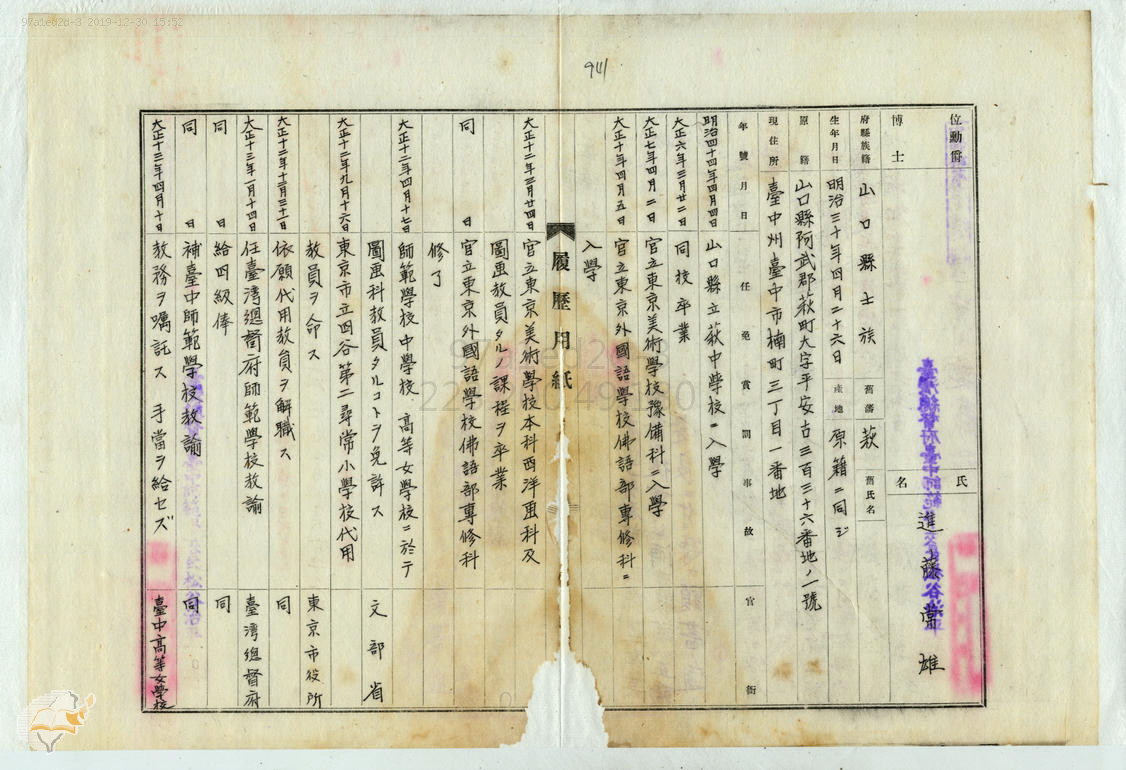 97a1ed2d-3 2019-12-30 15:52
941
位勳爵
博士
氏名 進藤常雄
府縣族籍 山口縣士族 舊藩 萩 舊氏名
生年月日 明治三十年四月二十六日 產地 原籍ニ同ジ
原籍 山口縣阿武郡萩町大字平安古三百三十六番地ノ一號
現住所 臺中州臺中市楠町三丁目一番地
年號月日 任免賞罰事故 官衙
明治四十四年四月四日 山口縣立萩中學校ニ入學
大正六年三月廿二日 同校卒業
大正七年四月二日 官立東京美術學校豫備科ニ入學
大正十年四月五日 官立東京外國語學校佛語部專修科ニ
入學
履歷用紙
大正十二年三月廿四日 官立東京美術學校本科西洋画科及
圖画教員タルノ課程ヲ卒業
同日 官立東京外國語學校佛語部專修科
修了
大正十二年四月十七日 師範學校中學校、高等女學校ニ於テ
圖画科教員タルコトヲ免許ス 文部省
大正十二年九月十六日 東京市立四谷第二尋常小學校代用
教員ヲ命ス 東京市役所
大正十二年十二月三十一日 依願代用教員ヲ解職ス 同
大正十三年一月十四日 任臺灣總督府師範學校教諭 臺灣總督府
同日 給四級俸 同
同日 補臺中師範學校教諭 同
大正十三年四月十日 教務ヲ囑託ス 手當ヲ給セズ 臺中高等女學校